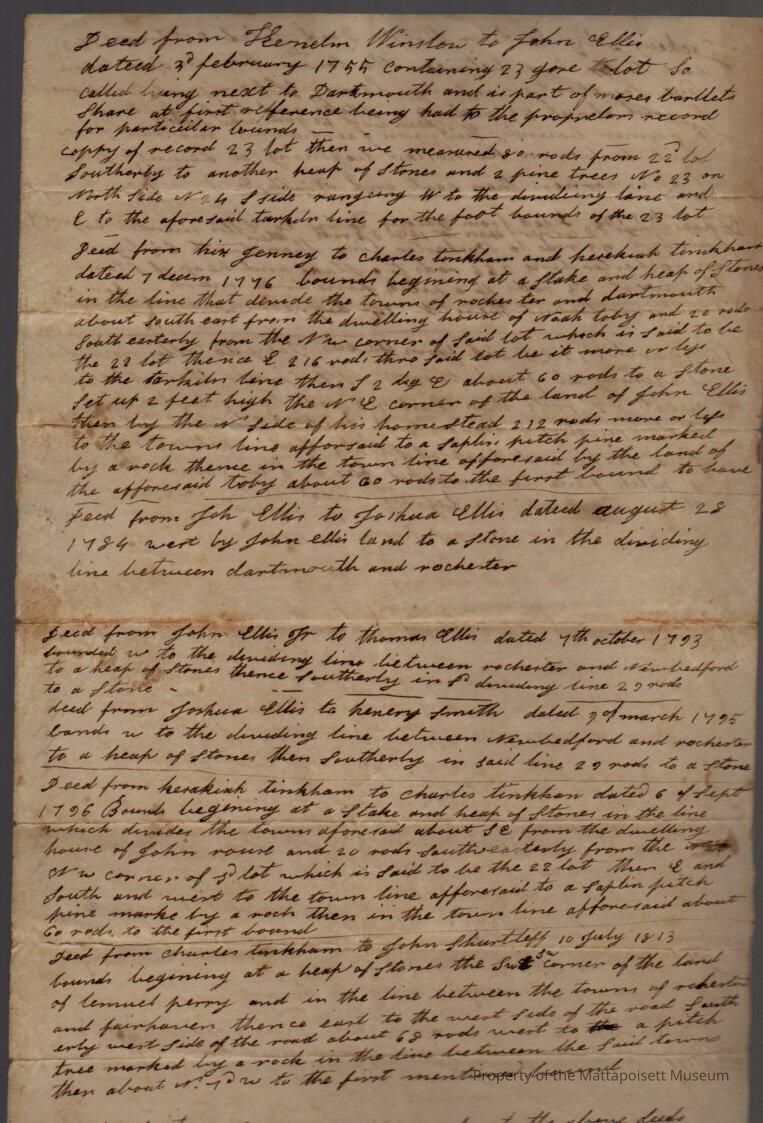 Deed from Kenelm Winslow to John Ellis
dateed 3d february 1755 containing 23 gore lot So
called lying next to Dartmouth and is part of moses barllets
Share at first refference being had to the proprietors record
for particular bounds
coppy of record 23 lot then we measured 80 rods from 22d lot
Southerly to another heap of Stones and 2 pine trees No 23 on
North Side N 24 S side rangung W to the dividiing line and
E to the aforesaid tarkiln line for the foot bounds of the 23 lot
Deed from Jenney to charles tinkham and hezekiah tinkham
dateed 7 decem 1776 bounds begining at a Stake and heap of Stones
in the line that devide the towns of rochester and dartmouth
about South east from the dwelling house of toby and 20 rods
South easterly from the N w corner of Said lot which is Said to be
the 22 lot thence E 216 rods thro Said lot be it more or less
to the tarkiln line then S 2 deg E about 60 rods to a Stone
Set up 2 feet high the N E corner of the land of John Ellis
then by the N Side of his homestead 212 rods more or less
to the towns line afforsaid to a Saplin pitch pine marked
by a rock thence in the town line afforesaid by the land of
the afforesaid toby about 60 rods to the first bound to have
Deed from Joh Ellis to Joshua Ellis dateed august 28
1784 west by John ellis land to a Stone in the dividing
line between dartmouth and rochester
Deed from John Ellis Jr to thomas Ellis dated 7th october 1793
bounded w to the dividing line between rochester and Newbedford
to a heap of Stones thence Southerly in Sd dividing line 29 rods
to a Stone
deed from Joshua Ellis to henery Smith dated 9 of march 1795
bounds w to the dividing line between Newbedford and rochester
to a heap of Stones then Southerly in said line 29 rods to a Stone
Deed from hezakiah tinkham to charles tinkham dated 6 of Sept
1796 Bounds begening at a Stake and heap of Stones in the line
which divides the towns aforesaid about SE from the dwelling
house of John rouse and 20 rods Southeasterly from the
N w corner of Sd lot which is Said to be the 22 lot then E and
South and west to the town line afforesaid to a Saplin pitch
pine marke by a rock then in the town line afforesaid about
60 rods to the first bound
Deed from charles tinkham to John Shurtleff 10 July 1813
bounds begening at a heap of Stones the Sw corner of the land
of lemuel perry and in the line between the towns of rochester
and fairhaven thence east to the west Side of the road South
erly west Side of the road about 68 rods west to a pitch
tree marked by a rock in the line between the Said towns
then about N w to the first mentioned bound
Property of the Mattapoisett Museum
the above deeds